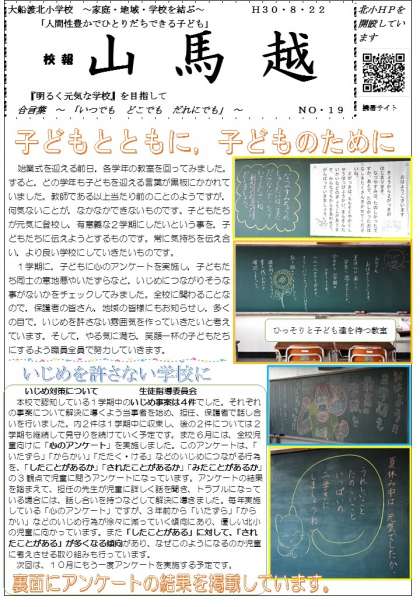 大船渡北小学校　～家庭・地域・学校を結ぶ～　Ｈ３０・８・２２
「人間性豊かでひとりだちできる子ども」
北小ＨＰを
開設してい
ます
校報　山馬越
『明るく元気な学校』を目指して
合言葉　～「いつでも　どこでも　だれにでも」～　ＮＯ・１９
携帯サイト
子どもとともに，子どものために
始業式を迎える前日，各学年の教室を回ってみました。
すると，どの学年も子どもを迎える言葉が黒板にかかれて
いました。教師である以上当たり前のことのようですが，
何気ないことが，なかなかできないものです。子どもたち
が元気に登校し，有意義な２学期にしたいという事を，子
どもたちに伝えようとするものです。常に気持ちを伝え合
い，より良い学校にしていきたいものです。
１学期に，子どもに心のアンケートを実施し，子どもた
ち同士の意地悪やいたずらなど，いじめにつながりそうな
事がないかをチェックしてみました。全校に関わることな
ので，保護者の皆さん，地域の皆様にもお知らせし，多く
の目で，いじめを許さない雰囲気を作っていきたいと考え
ています。そして，やる気に満ち，笑顔一杯の子どもたち
にするよう職員全員で努力していきます。
ひっそりと子ども達を待つ教室
いじめを許さない学校に
いじめ対策について　生徒指導委員会
本校で認知している１学期中のいじめ事案は４件でした。それぞれ
の事案について解決に導くよう当事者を始め，担任，保護者で話し合
いを行いました。内２件は１学期中に収束し，後の２件については２
学期も継続して見守りを続けていく予定です。また６月には，全校児
童向けに「心のアンケート」を実施しました。このアンケートは，「
いたずら」「からかい」「たたく・ける」などのいじめにつながる行為
を，「したことがあるか」「されたことがあるか」「みたことがあるか」
の３観点で児童に問うアンケートになっています。アンケートの結果
を踏まえて，担任の先生が児童に詳しく話を聞き，トラブルになって
いる場合には，話し合いを持つなどして解決に導きました。毎年実施
している「心のアンケート」ですが，３年前から「いたずら」「から
かい」などのいじめ行為が徐々に減っていく傾向にあり，優しい北小
の児童に向かっています。また「したことがある」に対して，「され
たことがある」が多くなる傾向があり，なぜこのようになるのか児童
に考えさせる取り組みも行っています。
次回は，１０月にもう一度アンケートを実施する予定です。
裏面にアンケートの結果を掲載しています。